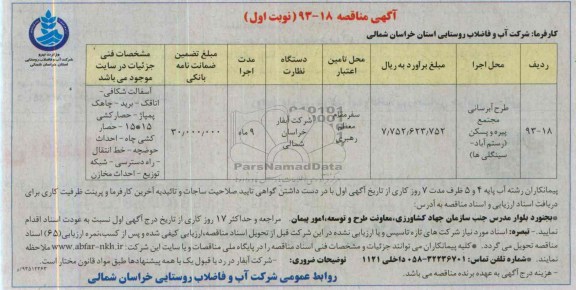 آگهی مناقصه ۱۸-۹۳ (نوبت اول)
کارفرما: شرکت آب و فاضلاب روستایی استان خراسان شمالی
ردیف
محل اجرا
مبلغ برآورد به ریال
محل تامین اعتبار
دستگاه نظارت
مدت اجرا
مبلغ تضمین ضمانت نامه بانکی
مشخصات فنی جزئیات در سایت موجود می باشد
۹۳-۱۸
طرح آبرسانی مجتمع پیره و پسکن (رستم آباد- سینگلی ها)
۷,۷۵۲,۶۲۳,۷۵۲
سفر مقام معظم رهبری
شرکت آبفار خراسان شمالی
۹ ماه
۳۰,۰۰۰,۰۰۰
آسفالت شکافی- اتاقک - برید - چاهک پمپاژ - حصار کشی ۱۵*۱۵ - حصار کشی چاه - احداث حوضچه - خط انتقال - راه دسترسی - شبکه توزیع - احداث مخازن
ParsNamadData
پیمانکاران رشته آب پایه ۴ و ۵ ظرف مدت ۷ روز کاری از تاریخ آگهی اول با در دست داشتن گواهی تایید صلاحیت ساجات و تائیدیه آخرین کارفرما و پرینت ظرفیت کاری برای
دریافت اسناد ارزیابی و اسناد مناقصه به آدرس:
*بجنورد بلوار مدرس جنب سازمان جهاد کشاورزی، معاونت طرح و توسعه، امور پیمان. مراجعه و حداکثر ۱۷ روز کاری از تاریخ درج آگهی اول نسبت به عودت اسناد اقدام
نمایند. * تبصره: اسناد مورد نیاز شرکت های تازه تاسیس و یا ارزیابی نشده در این شرکت قبل از تحویل اسناد مناقصه، ارزیابی کیفی شده و پس از کسب نمره ارزیابی (۶۵) اسناد
مناقصه تحویل می گردد. * کلیه پیمانکاران می توانند جزئیات و مشخصات فنی اسناد مناقصه را در پایگاه ملی مناقصات و یا سایت این شرکت: www.abfar-nkh.ir ملاحظه
نمایند. *شماره تلفن تماس: ۳۲۲۳۶۷۰۱-۰۵۸ داخلی ۱۱۲۱ توضیحات ضروری: -شرکت آبفار در رد یا قبول یک یا همه پیشنهادها طبق مواد قانون مختار است.
- هزینه درج آگهی به عهده برنده مناقصه می باشد.
روابط عمومی شرکت آب و فاضلاب روستایی خراسان شمالی